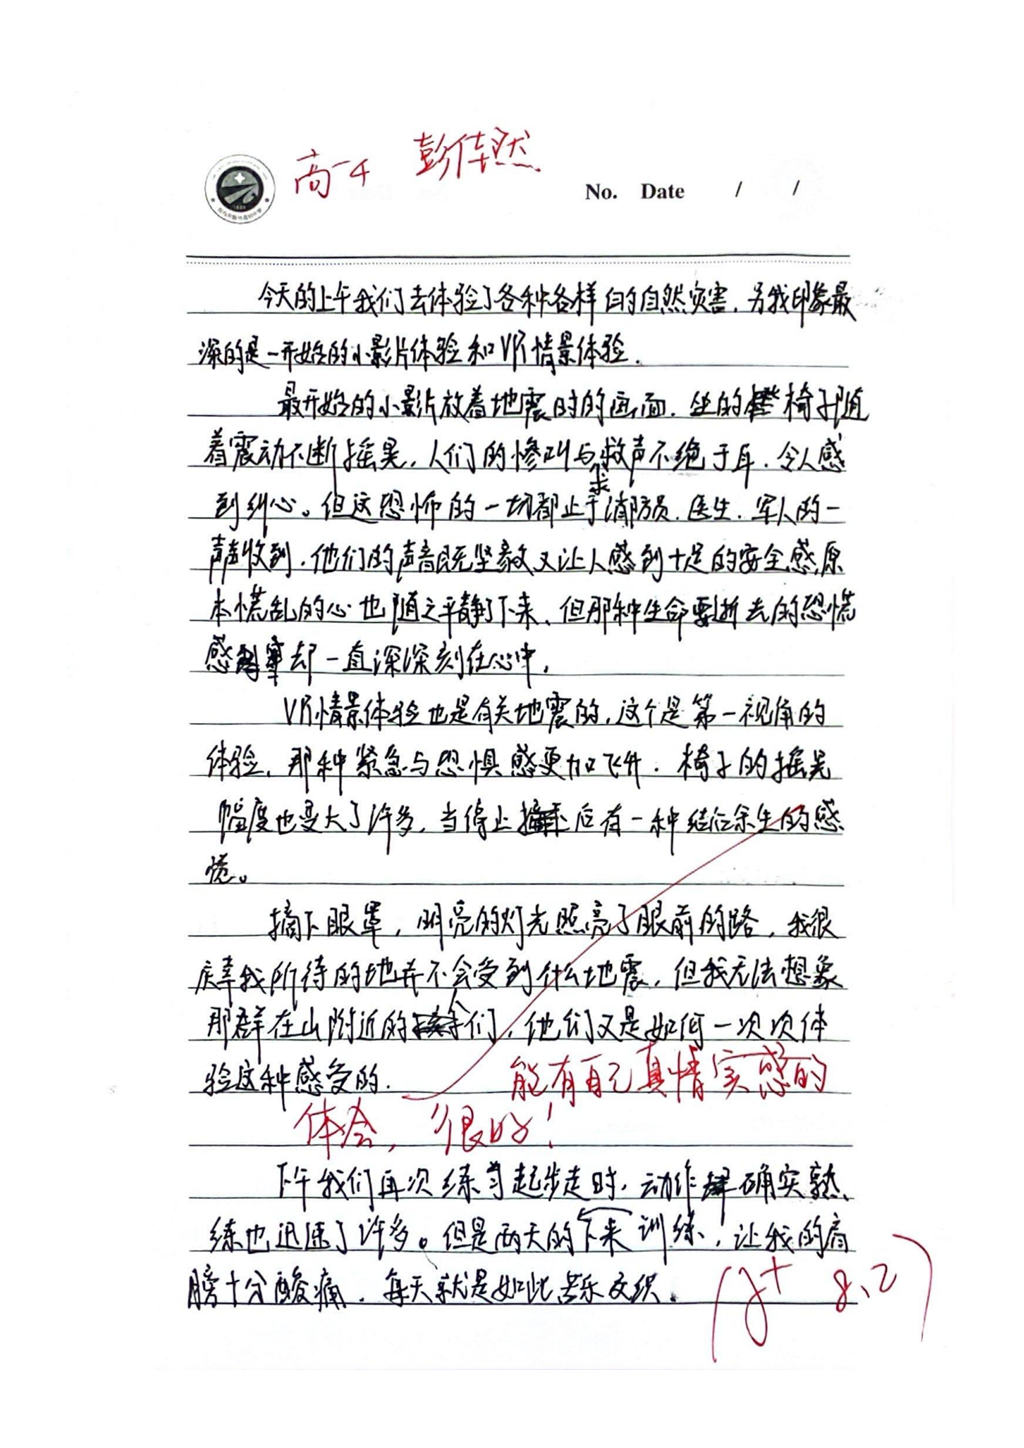 高一4 彭佳然
No. Date / /
今天的上午我们去体验了各种各样的自然灾害,另我印象最
深的是一开始的小影片体验和VR情景体验.
最开始的小影片放着地震时的画面,坐的椅子随
着震动不断摇晃,人们的惨叫与求救声不绝于耳,令人感
到纠心。但这恐怖的一切都止于消防员、医生、军人的一
声声收到,他们的声音既坚毅又让人感到十足的安全感,原
本慌乱的心也随之平静下来,但那种生命要逝去的恐慌
感却一直深深刻在心中,
VR情景体验也是有关地震的,这个是第一视角的
体验,那种紧急与恐惧感更加飞升.椅子的摇晃
幅度也变大了许多,当停止后有一种结后余生的感
慌。
摘下眼罩,明亮的灯光照亮了眼前的路,我很
庆幸我所待的地并不会受到什么地震,但我无法想象
那群在山附近的人们,他们又是如何一次次体
验这种感受的.
能有自己真情实感的
体会,很好!
下午我们再次练习起步走时,动作确实熟
练也迅速了许多。但是两天的下来训练,让我的肩
膀十分酸痛.每天就是如此苦乐交织.
8.2